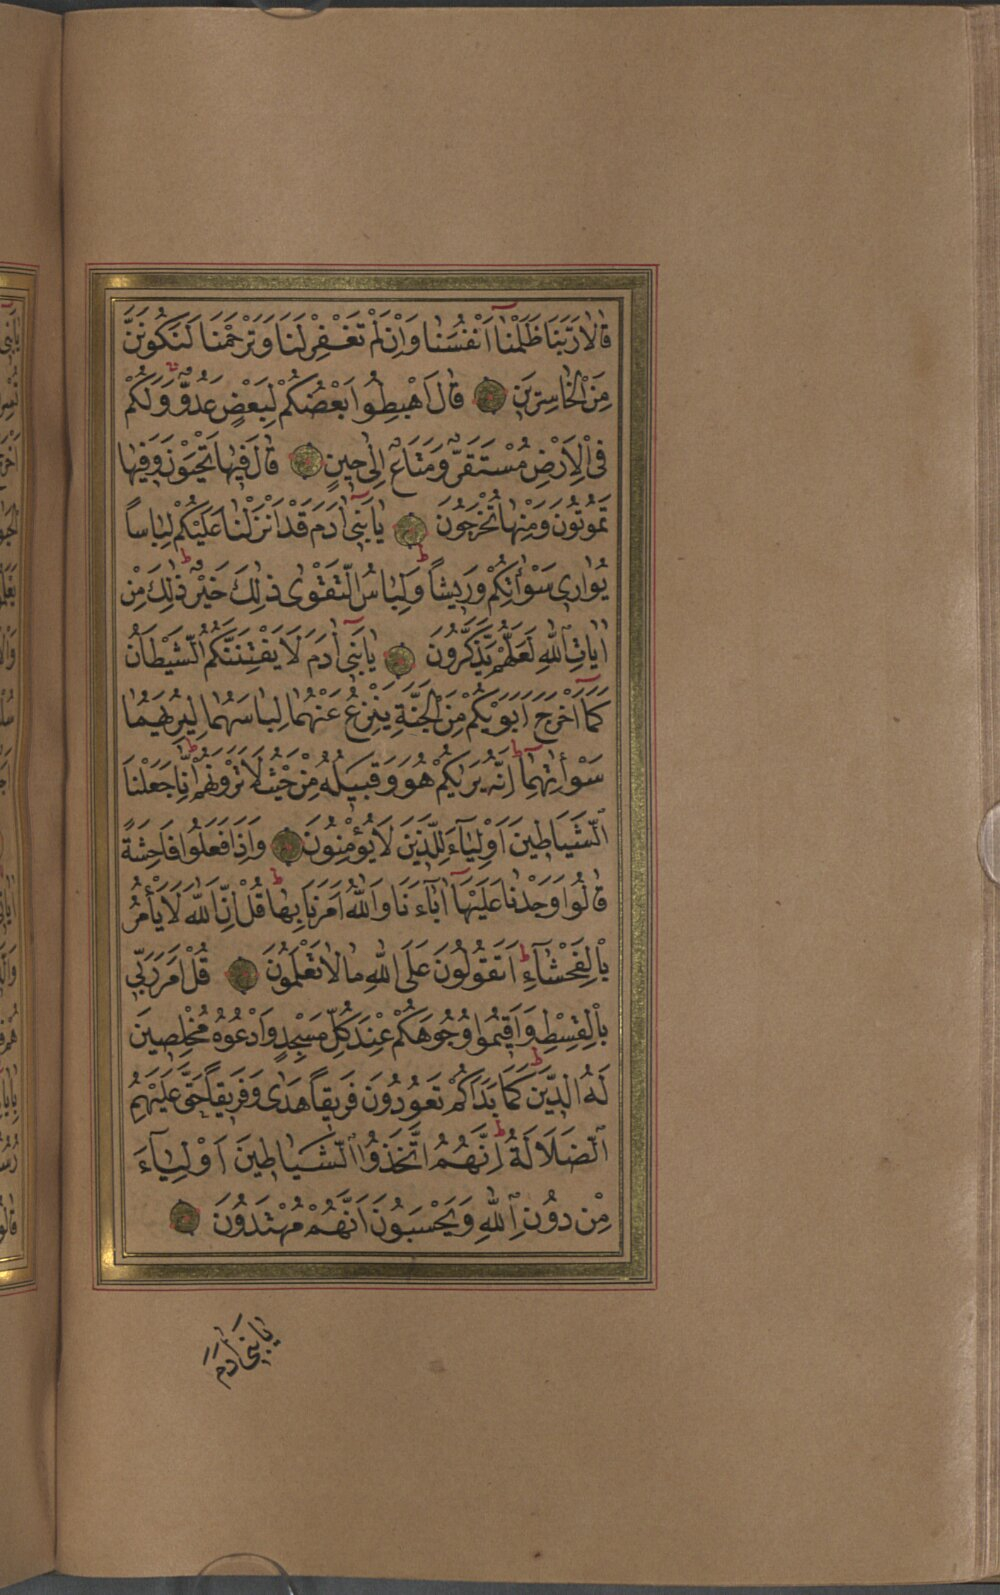 قَالَا رَبَّنَا ظَلَمْنَٓا اَنْفُسَنَا وَاِنْ لَمْ تَغْفِرْ لَنَا وَتَرْحَمْنَا لَنَكُونَنَّ
مِنَ الْخَاسِرِينَ قَالَ اهْبِطُوا بَعْضُكُمْ لِبَعْضٍ عَدُوٌّ وَلَكُمْ
فِى الْاَرْضِ مُسْتَقَرٌّ وَمَتَاعٌ اِلٰى حِينٍ قَالَ فِيهَا تَحْيَوْنَ وَفِيهَا
تَمُوتُونَ وَمِنْهَا تُخْرَجُونَ يَا بَنِٓى اٰدَمَ قَدْ اَنْزَلْنَا عَلَيْكُمْ لِبَاسًا
يُوَارِى سَوْاٰتِكُمْ وَرِيشًا ط وَلِبَاسُ التَّقْوٰى ذٰلِكَ خَيْرٌ ط ذٰلِكَ مِنْ
اٰيَاتِ اللّٰهِ لَعَلَّهُمْ يَذَّكَّرُونَ يَا بَنِٓى اٰدَمَ لَا يَفْتِنَنَّكُمُ الشَّيْطَانُ
كَمَٓا اَخْرَجَ اَبَوَيْكُمْ مِنَ الْجَنَّةِ يَنْزِعُ عَنْهُمَا لِبَاسَهُمَا لِيُرِيَهُمَا
سَوْاٰتِهِمَا ط اِنَّهُ يَرٰيكُمْ هُوَ وَقَبِيلُهُ مِنْ حَيْثُ لَا تَرَوْنَهُمْ ط اِنَّا جَعَلْنَا
الشَّيَاطِينَ اَوْلِيَٓاءَ لِلَّذِينَ لَا يُؤْمِنُونَ وَاِذَا فَعَلُوا فَاحِشَةً
قَالُوا وَجَدْنَا عَلَيْهَٓا اٰبَٓاءَنَا وَاللّٰهُ اَمَرَنَا بِهَا ط قُلْ اِنَّ اللّٰهَ لَا يَأْمُرُ
بِالْفَحْشَٓاءِ ط اَتَقُولُونَ عَلَى اللّٰهِ مَا لَا تَعْلَمُونَ قُلْ اَمَرَ رَبِّى
بِالْقِسْطِ وَاَقِيمُوا وُجُوهَكُمْ عِنْدَ كُلِّ مَسْجِدٍ وَادْعُوهُ مُخْلِصِينَ
لَهُ الدِّينَ ط كَمَا بَدَاَكُمْ تَعُودُونَ فَرِيقًا هَدٰى وَفَرِيقًا حَقَّ عَلَيْهِمُ
الضَّلَالَةُ ط اِنَّهُمُ اتَّخَذُوا الشَّيَاطِينَ اَوْلِيَٓاءَ
مِنْ دُونِ اللّٰهِ وَيَحْسَبُونَ اَنَّهُمْ مُهْتَدُونَ
يَا بَنِى اٰدَمَ